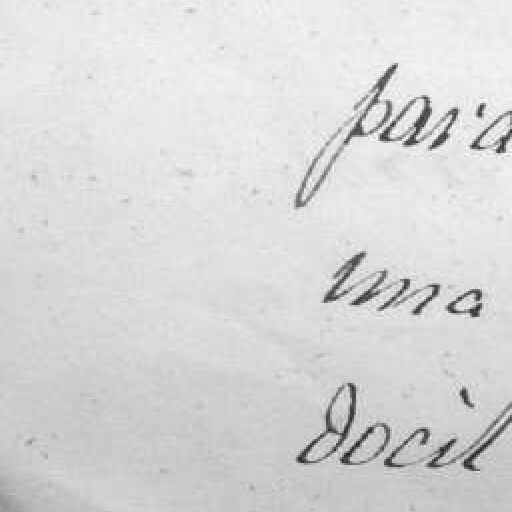 para
una
docil